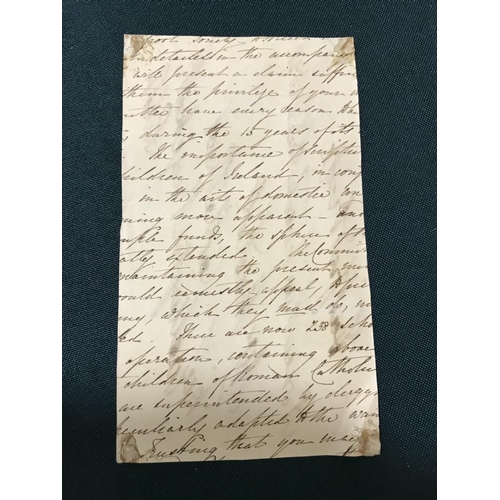 society assured
detailed in the accompan
will present a claim suffici
them the privilege of your
mittee have every reason
during the 15 years of its
The importance of Scriptu
children of Ireland, in conj
in the arts of domestic econ
ming more apparent — and
ample funds, the sphere of th
atly extended. The Commit
maintaining the present nu
ould earnestly appeal,
ny, which they made do, m
ed. There are now 238 scho
operation, containing above
children of Roman Catholic
are superintended by clergy
peculiarly adapted to the wan
Trusting that you may